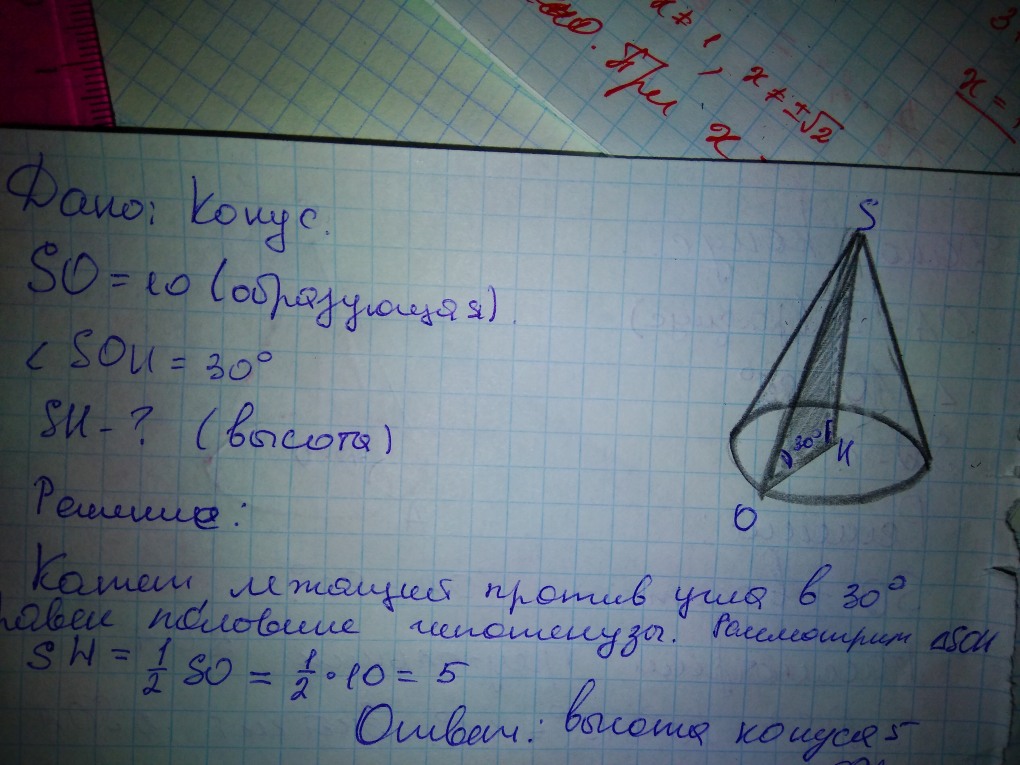 но. При
x ≠ 1, x ≠ ±√2
x
x =
Дано: Конус.
SO = 10 (образующая).
∠ SOH = 30°
SH - ? (высота)
Решение:
Катет лежащий против угла в 30°
равен половине гипотенузы. Рассмотрим ΔSOH
SH = 1/2 SO = 1/2 · 10 = 5
Ответ: высота конуса 5
S
30°
H
O